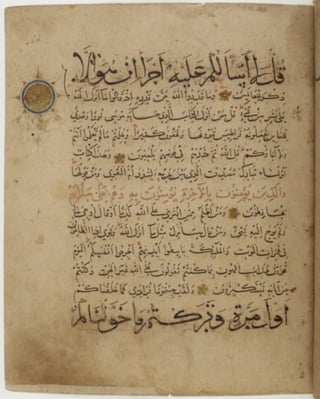 قل لا أسألكم عليه أجرا إن هو إلا
ذكرى للعالمين وما قدروا الله حق قدره إذ قالوا ما أنزل الله
على بشر من شيء قل من أنزل الكتاب الذي جاء به موسى نورا وهدى
للناس تجعلونه قراطيس تبدونها وتخفون كثيرا وعلمتم ما لم تعلموا أنتم
ولا آباؤكم قل الله ثم ذرهم في خوضهم يلعبون وهذا كتاب
أنزلناه مبارك مصدق الذي بين يديه ولتنذر أم القرى ومن حولها
والذين يؤمنون بالآخرة يؤمنون به وهم على صلاتهم
يحافظون ومن أظلم ممن افترى على الله كذبا أو قال أوحي إلي
ولم يوح إليه شيء ومن قال سأنزل مثل ما أنزل الله ولو ترى إذ الظالمون
في غمرات الموت والملائكة باسطوا أيديهم أخرجوا أنفسكم اليوم
تجزون عذاب الهون بما كنتم تقولون على الله غير الحق وكنتم
عن آياته تستكبرون ولقد جئتمونا فرادى كما خلقناكم
أول مرة وتركتم ما خولناكم